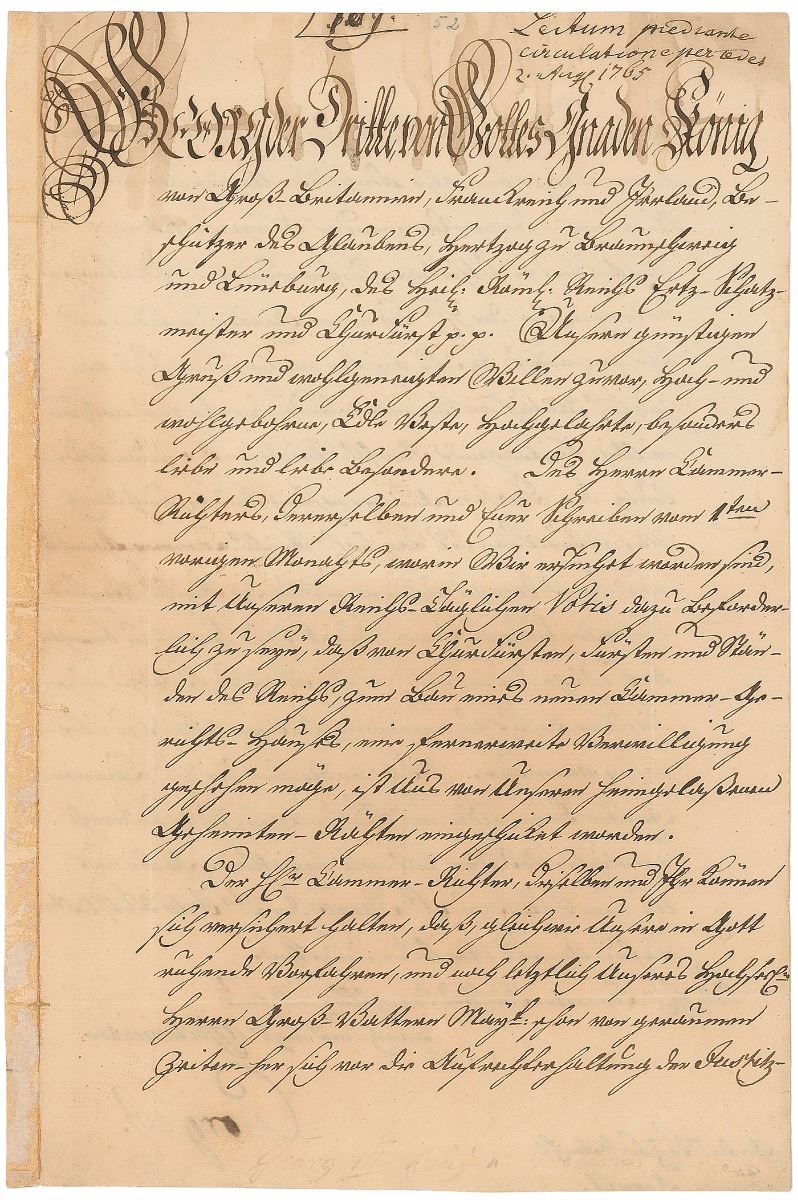 52
Lectum mediante
circulatione per ædes
2. Aug 1765
George der Dritte von Gottes Gnaden König
von Groß-Britannien, Franckreich und Irrland, Be-
schützer des Glaubens, Hertzog zu Braunschweig
und Lüneburg, des Heil: Röm: Reichs Ertz-Schatz-
meister und Churfürst p. p. Unsern günstigen
Gruß und wohlgeneigten Willen zuvor, Hoch- und
wohlgebohrne, Edle Veste, Hochgelahrte, besonders
liebe und liebe Besondere. Des Herrn Cammer-
Richters, derenselben und Euer Schreiben vom 1ten
vorigen Monahts, worin Wir ersuchet worden sind,
mit Unseren Reichs-Täglichen Votis dazu beforder-
lich zu seyn, daß von Churfürsten, Fürsten und Stän-
den des Reichs, zum Bau eines neuen Cammer-Ge-
richts-Hauses, eine fernerweite Verwilligung
geschehen möge, ist Uns von Unseren heimgelaßenen
Geheimten-Rähten eingeschicket worden.
Der Hr Cammer-Richter, dieselben und Ihr können
sich versichert halten, daß, gleichwie Unsere in Gott
ruhende Vorfahren, und noch letztlich Unseres Hochseeln
Herrn Groß-Vattern Mayt: schon von geraumen
Zeiten-her sich vor die Aufrechterhaltung der Justitz-